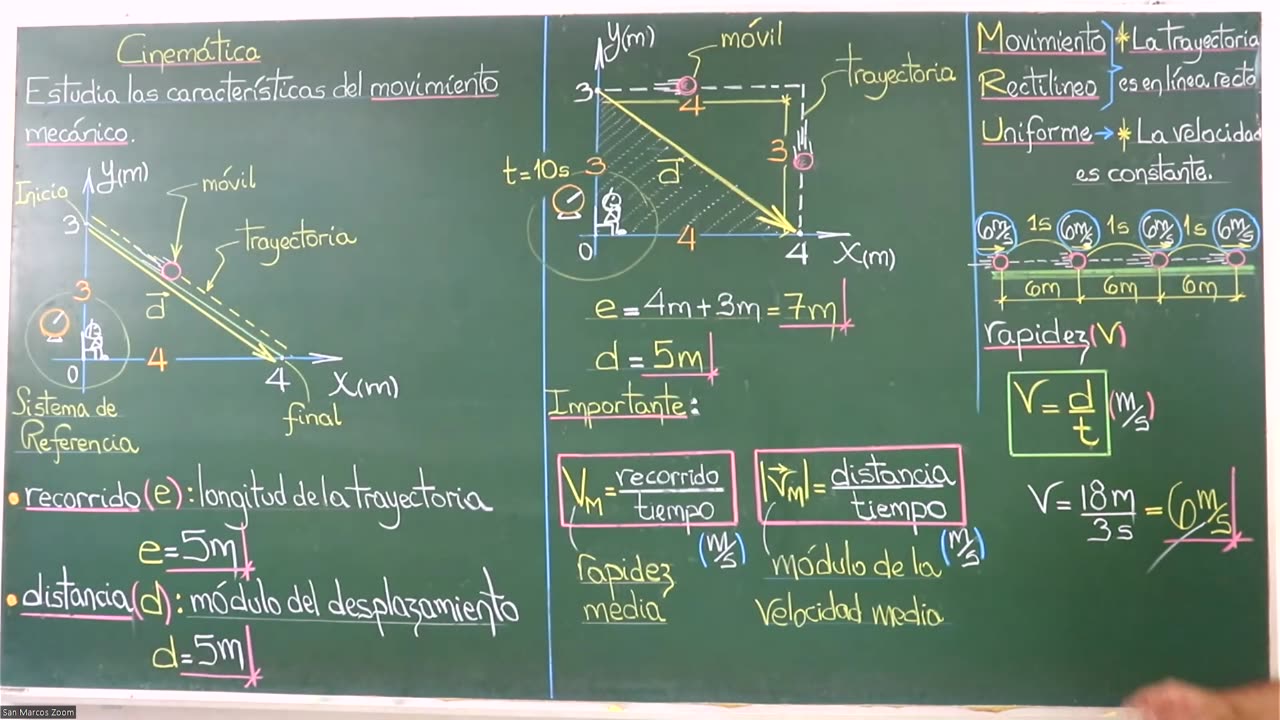 Cinemática
Estudia las características del movimiento
mecánico.
Inicio
Y(m)
móvil
3
trayectoria
3
d
4
0
4
X(m)
final
Sistema de
Referencia
recorrido(e): longitud de la trayectoria
e=5m
distancia(d): módulo del desplazamiento
d=5m
Y(m)
móvil
trayectoria
3
4
t=10s
3
d
3
0
4
4
X(m)
e=4m+3m=7m
d=5m
Importante:
VM=recorrido/tiempo
(m/s)
rapidez
media
|VM|=distancia/tiempo
(m/s)
módulo de la
velocidad media
Movimiento * La trayectoria
Rectilineo es en línea recta
Uniforme→* La velocidad
es constante.
6m/s 1s 6m/s 1s 6m/s 1s 6m/s
6m 6m 6m
rapidez(V)
V=d/t (m/s)
V=18m/3s=6m/s
San Marcos Zoom